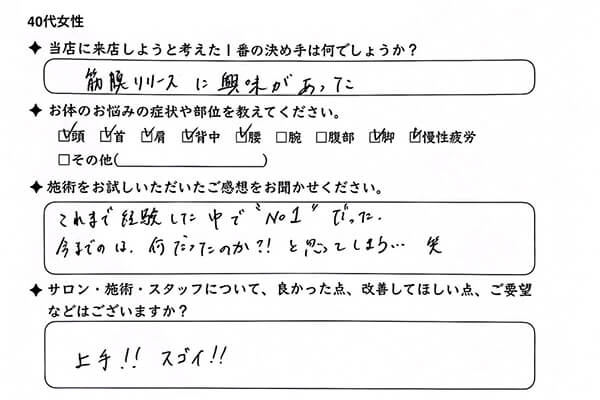 40代女性
✦ 当店に来店しようと考えた1番の決め手は何でしょうか?
筋膜リリースに興味があった
✦ お体のお悩みの症状や部位を教えてください。
☑頭 ☑首 ☑肩 ☑背中 ☑腰 □腕 □腹部 ☑脚 ☑慢性疲労
□その他( )
✦ 施術をお試しいただいたご感想をお聞かせください。
これまで経験した中で“No1”だった.
今までのは、何だったのか?! と思ってしまう… 笑
✦ サロン・施術・スタッフについて、良かった点、改善してほしい点、ご要望
などはございますか?
上手!! スゴイ!!